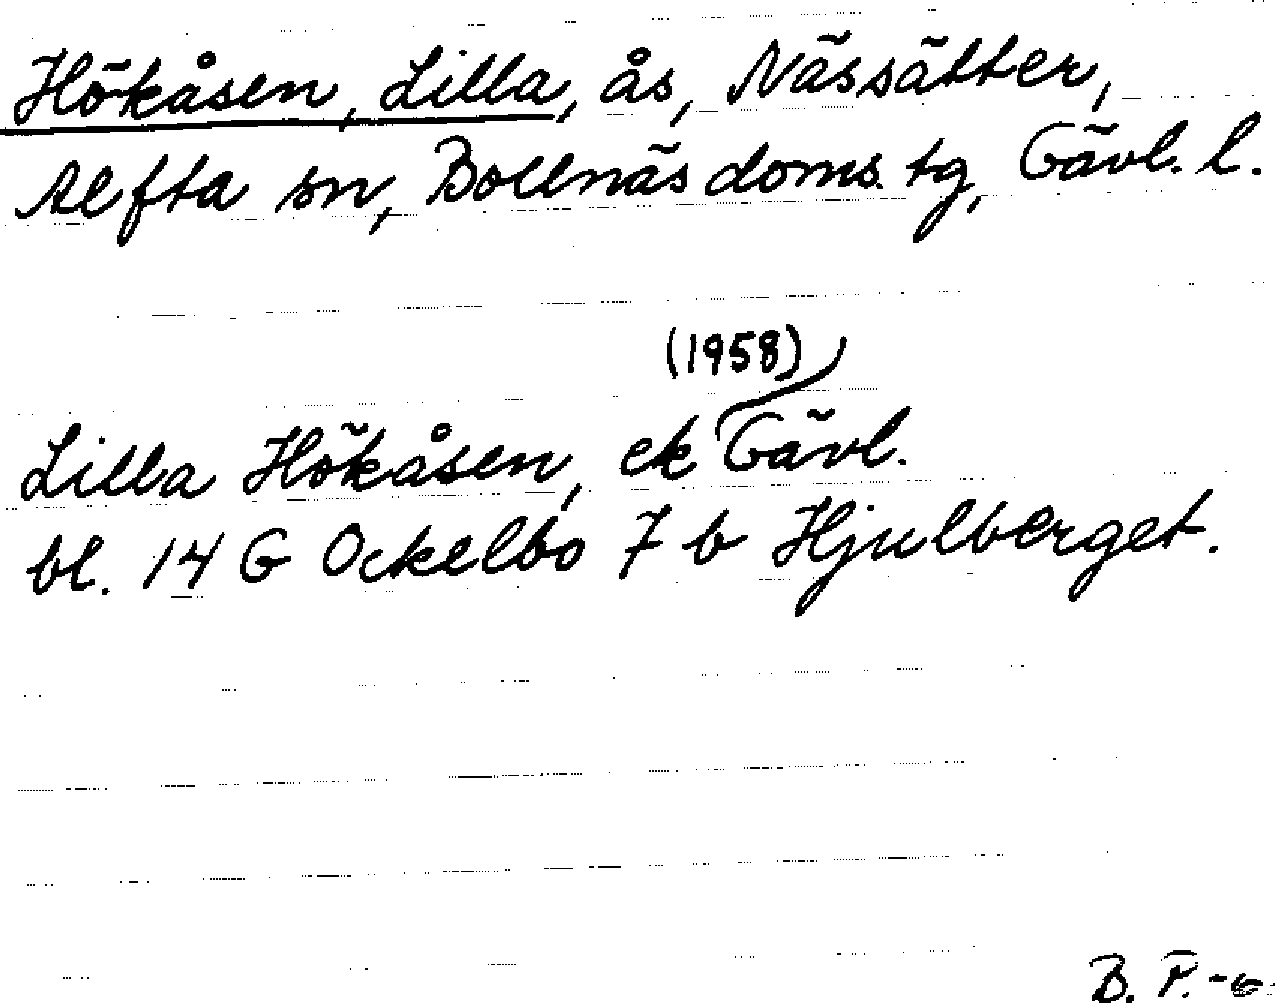 Hökåsen, Lilla, ås, Nässätter,
Alfta sn, Bollnäs doms. tg, Gävl. l.
(1958)
Lilla Hökåsen, ek Gävl.
bl. 14 G Ockelbo 7 b Hjulberget.
B. P.